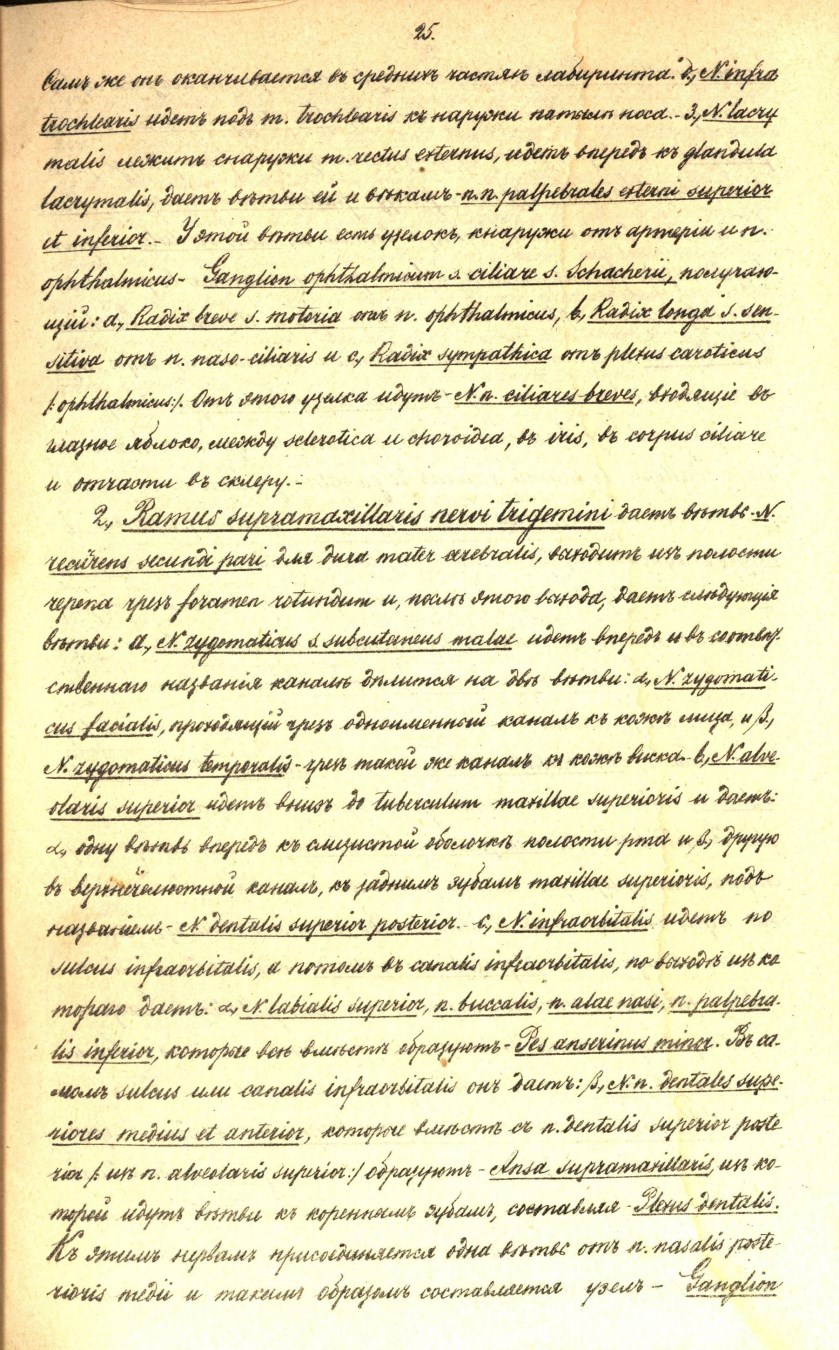 25.
Самъ же онъ оканчивается въ среднихъ частяхъ лабиринта. d, N. infra
trochlearis идетъ подъ m. trochlearis къ наружи носа. - 3, N. lacry
malis лежитъ снаружи m. rectus externus, идетъ впередъ къ glandula
lacrymalis, даетъ вѣтви ей и вѣкамъ - n.n. palpebrales externi superior
et inferior. - У этой вѣтви есть узелокъ, кнаружи отъ артеріи и n.
ophthalmicus - Ganglion ophthalmicum s. ciliare s. Schacherii, получаю-
щій: a, Radix breve s. motoria отъ n. ophthalmicus, b, Radix longa s. sen-
sitiva отъ n. naso-ciliaris и c, Radix sympathica отъ plexus caroticus
/: ophthalmicus:/. Отъ этого узелка идутъ - N.n. ciliares breves, входящіе въ
глазное яблоко, между sclerotica и choroidea, въ iris, въ corpus ciliare
и отчасти въ склеру. -
2, Ramus supramaxillaris nervi trigemini даетъ вѣтвь - N.
recurens secundi pari для dura mater cerebralis, выходитъ изъ полости
черепа чрезъ foramen rotundum и, послѣ этого выхода, даетъ слѣдующія
вѣтви: a, N. zygomaticus s. subcutaneus malae идетъ впередъ и въ соотвѣт-
ственнаго названія каналѣ дѣлится на двѣ вѣтви: α, N. zygomati-
cus facialis, проходящій чрезъ одноименной каналъ къ кожѣ лица, и β,
N. zygomaticus temporalis - чрезъ такой же каналъ къ кожѣ виска. - b, N. alve-
olaris superior идетъ внизъ до tuberculum maxillae superioris и даетъ:
α, одну вѣтвь впередъ къ слизистой оболочкѣ полости рта и β, другую
въ верхнечелюстной каналъ, къ заднимъ зубамъ maxillae superioris, подъ
названіемъ - N. dentalis superior posterior. - c, N. infraorbitalis идетъ по
sulcus infraorbitalis, а потомъ въ canalis infraorbitalis, по выходѣ изъ ко
тораго даетъ: α, N. labialis superior, n. buccalis, n. alae nasi, n. palpebra-
lis inferior, которые всѣ вмѣстѣ образуютъ - Pes anserinus minor. Въ са-
момъ sulcus или canalis infraorbitalis онъ даетъ: β, N.n. dentales supe-
riores medius et anterior, которые вмѣстѣ съ n. dentalis superior poste
rior /: изъ n. alveolaris superior:/ образуютъ - Ansa supramaxillaris, изъ ко-
торой идутъ вѣтви къ кореннымъ зубамъ, составляя - Plexus dentalis.
Къ этимъ нервамъ присоединяется одна вѣтвь отъ n. nasalis poste-
rioris medii и такимъ образомъ составляется узелъ - Ganglion